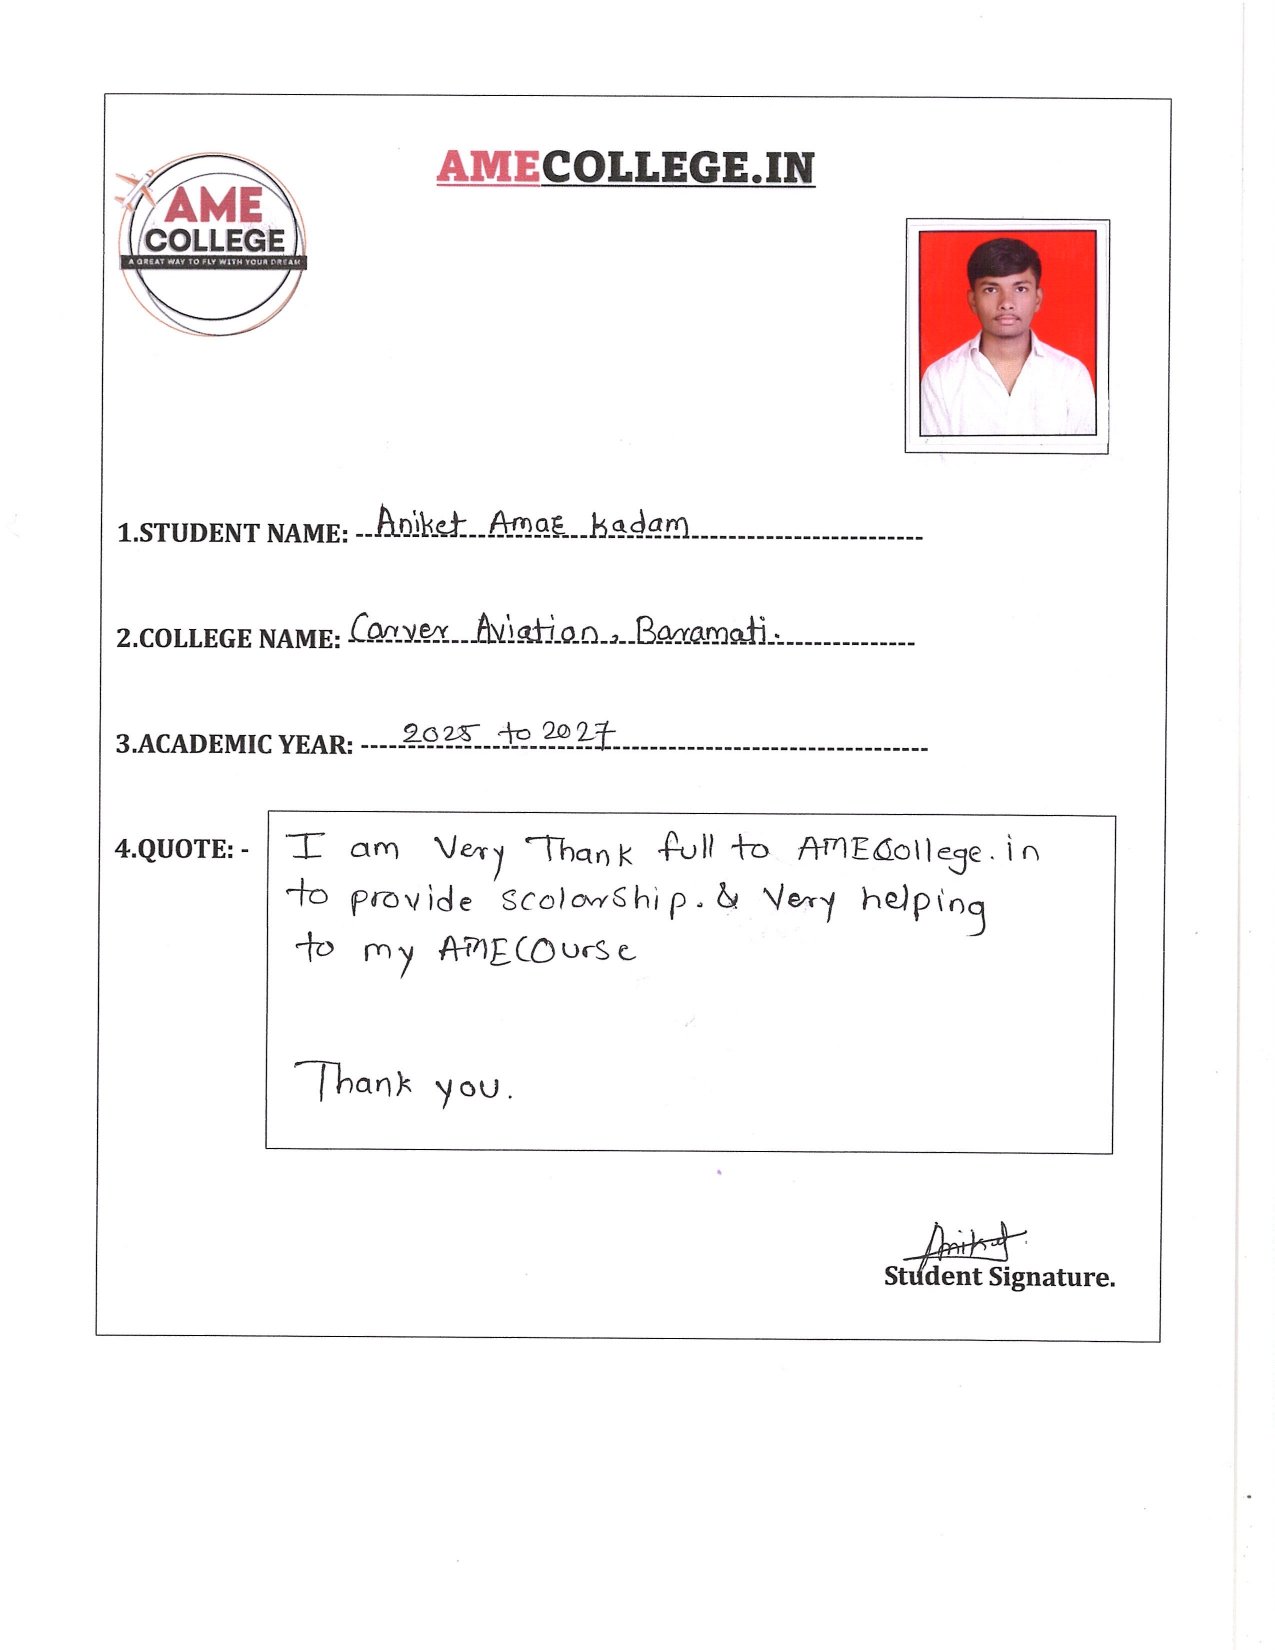 AMECOLLEGE.IN
AME
COLLEGE
A GREAT WAY TO FLY WITH YOUR DREAM
1.STUDENT NAME: Aniket Amar Kadam
2.COLLEGE NAME: Carver Aviation, Baramati.
3.ACADEMIC YEAR: 2025 to 2027
4.QUOTE: - I am Very Thank full to AMECollege.in
to provide scolarship. & Very helping
to my AMECOUrse
Thank you.
Aniket.
Student Signature.